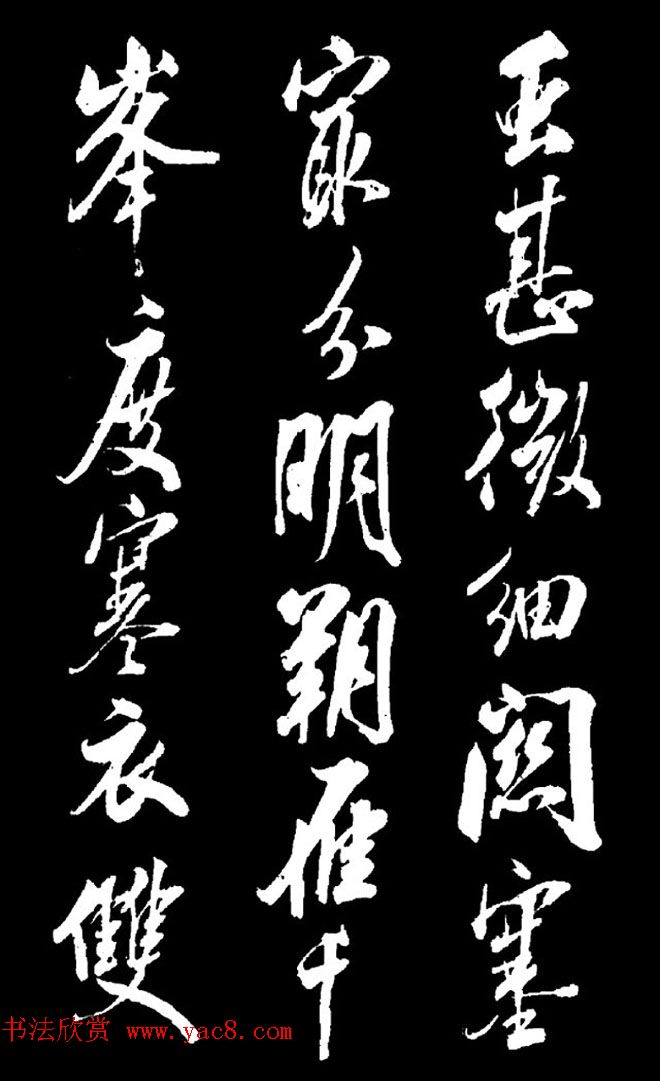 甚微細關塞
最分明朔雁千
峯度寒衣雙
书法欣赏 www.yac8.com